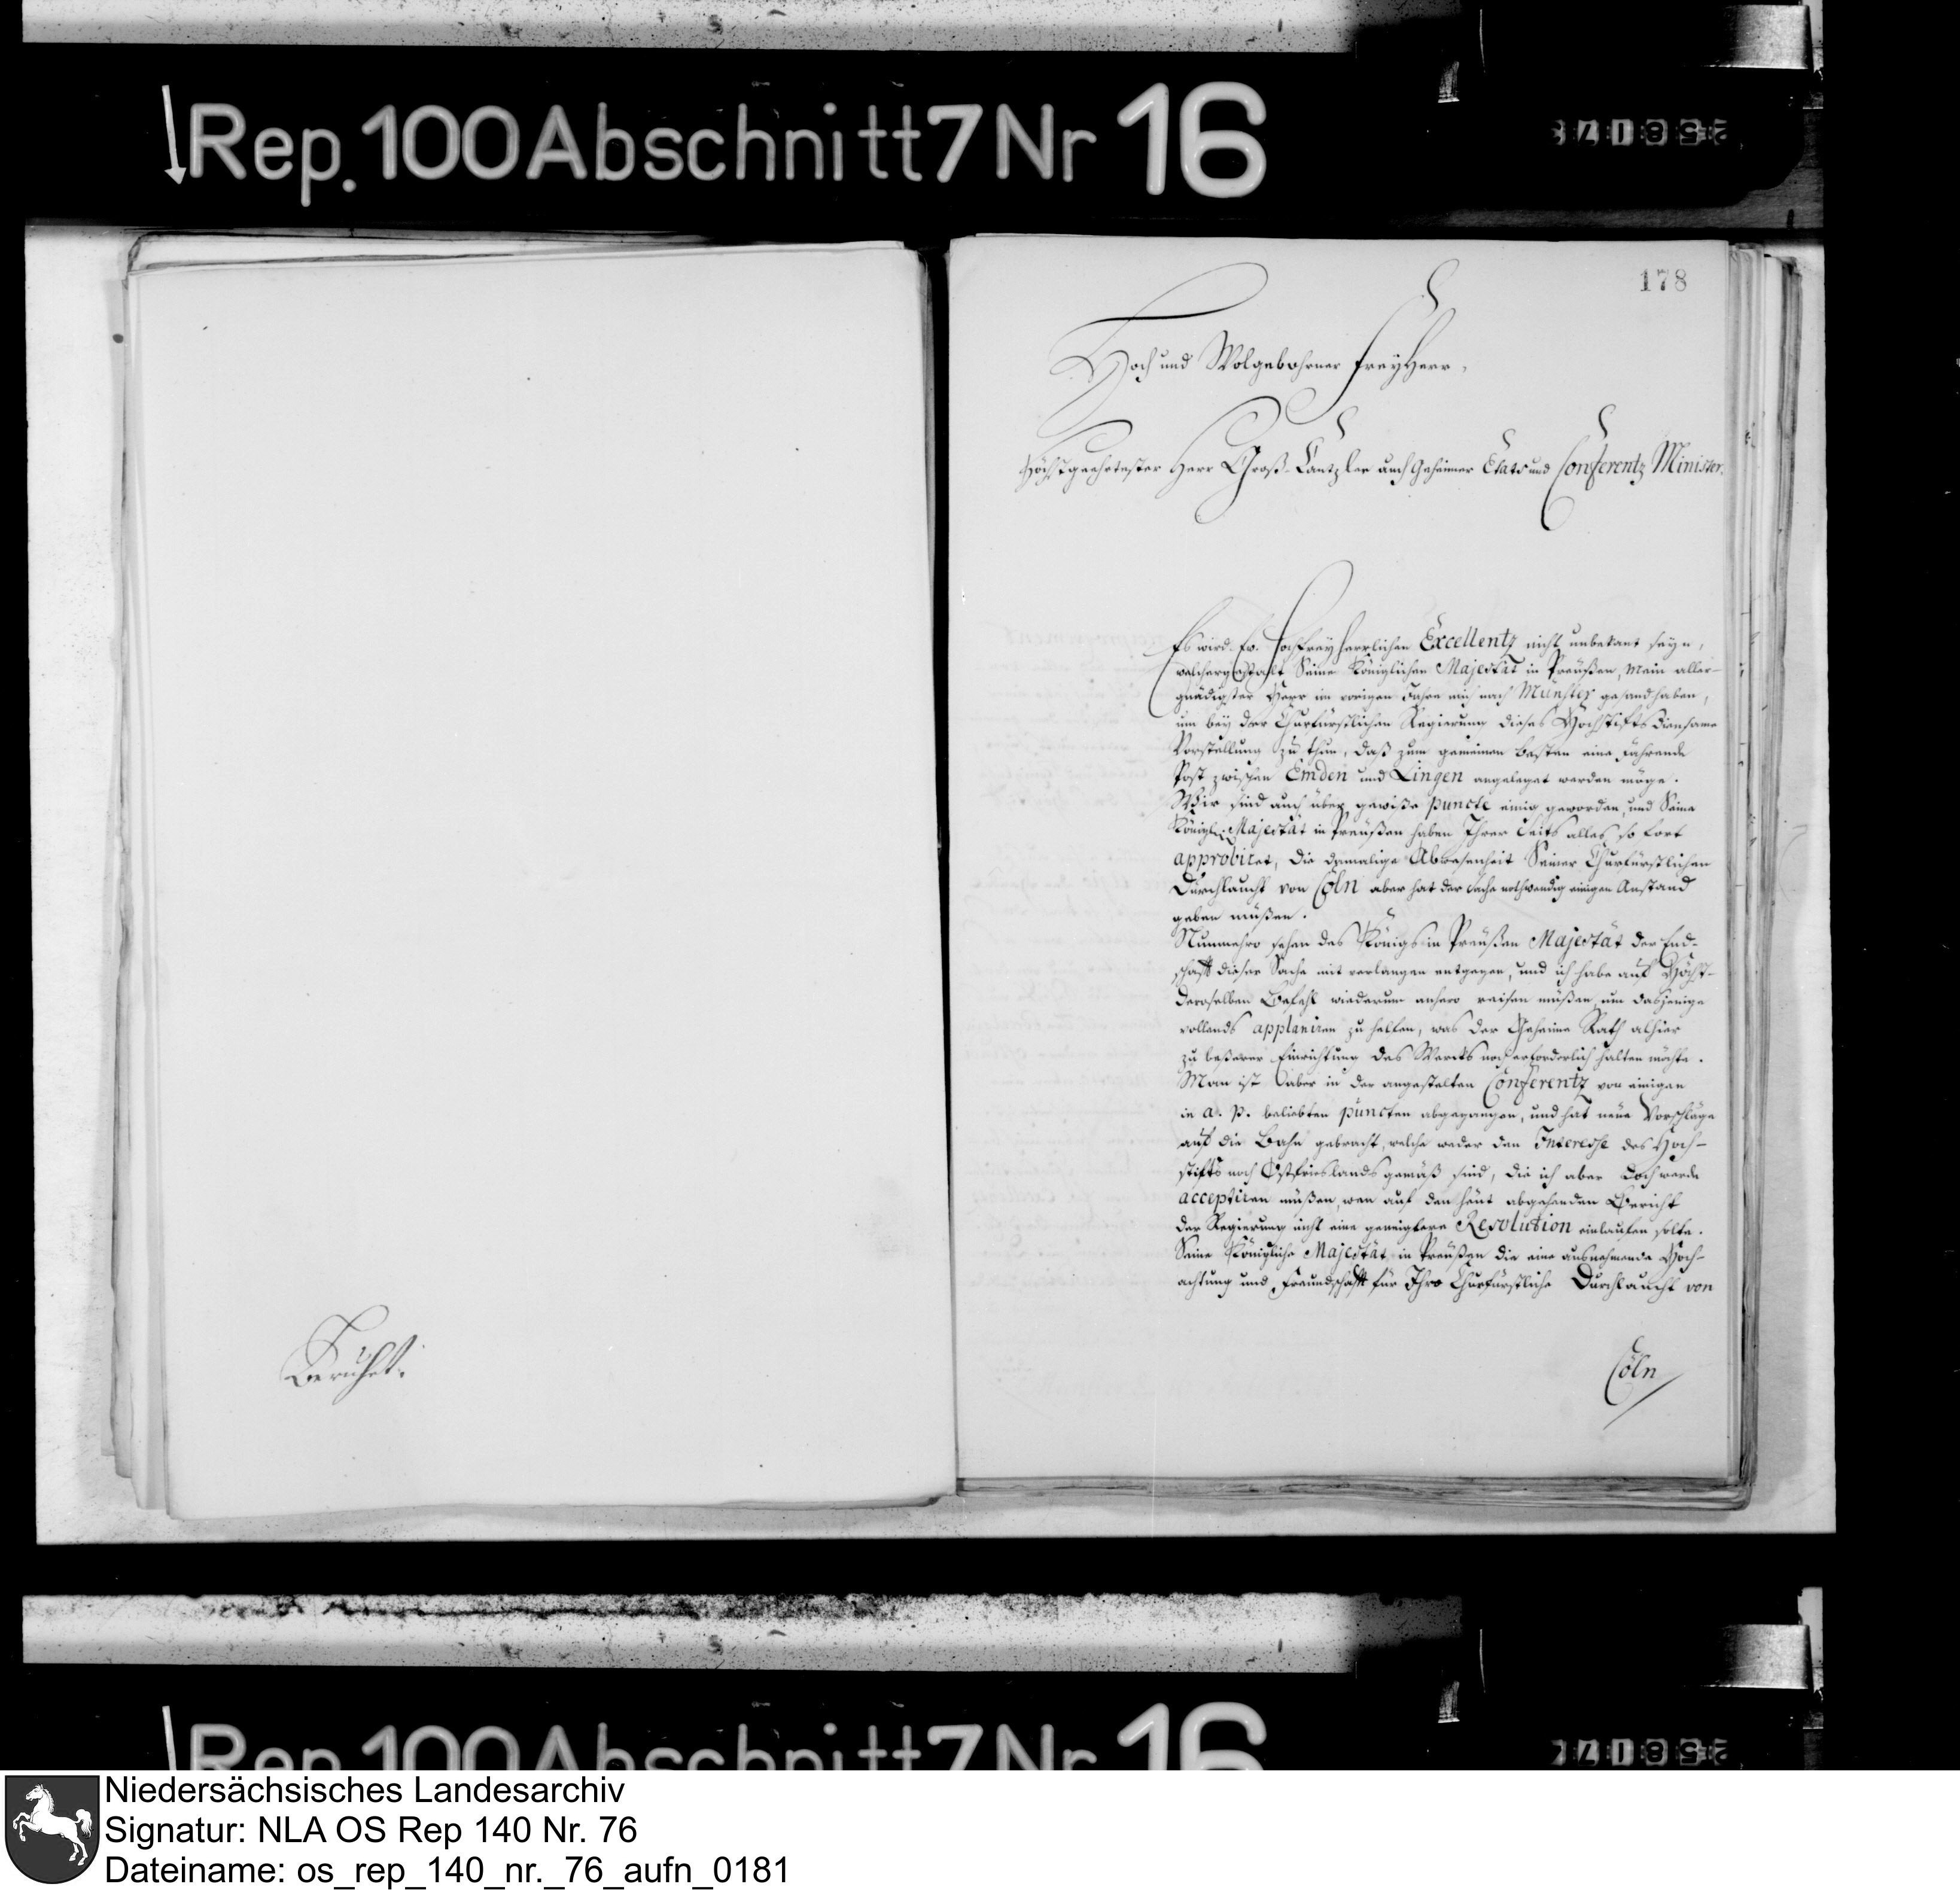 Rep. 100 Abschnitt 7 Nr 16
178
Hoch und Wolgebohrner FreyHerr,
Höchstgeehrtester Herr Groß-Cantzler auch Geheimer Etats und Conferentz Minister.
Es wird Ew. HochFreyherrlichen Excellentz nicht unbekant seyn,
welchergestalt Seine Königlichen Majestät in Preüßen, mein aller-
gnädigster Herr im vorigen Jahre mich nach Münster gesand haben,
um bey der Churfürstlichen Regierung dieses Hochstifts diensame
Vorstellung zu thun, daß zum gemeinen besten eine fahrende
Post zwischen Emden und Lingen angeleget werden möge.
Wir sind auch über gewiße puncte einig geworden, und Seine
Königl. Majestät in Preüßen haben Ihrer Seits alles so fort
approbiret, die damalige Abwesenheit Seiner Churfürstlichen
Durchlaucht von Cöln aber hat der Sache nothwendig einigen Anstand
geben müßen.
Nunmehro sehen des Königs in Preüßen Majestät der End-
schafft dieser Sache mit verlangen entgegen, und ich habe auf Höchst-
deroselben Befehl wiederum anhero reisen müßen, um dasjenige
vollends applaniren zu helfen, was der Geheime Rath alhier
zu beßerer Einrichtung des Wercks noch erforderlich halten möchte.
Man ist aber in der angestelten Conferentz von einigen
in a. p. beliebten puncten abgegangen, und hat neüe Vorschläge
auf die Bahn gebracht, welche weder dem Interesse des Hoch-
stifts noch Ostfrieslands gemäß sind, die ich aber doch werde
acceptiren müßen, wen auf den heüt abgehenden Bericht
der Regierung nicht eine geneigtere Resolution einlaufen solte.
Seine Königliche Majestät in Preüßen die eine ausnehmende Hoch-
achtung und Freundschafft für Ihro Churfürstliche Durchlaucht von
Cöln
Beruhet.
Rep. 100 Abschnitt 7 Nr 16
Niedersächsisches Landesarchiv
Signatur: NLA OS Rep 140 Nr. 76
Dateiname: os_rep_140_nr._76_aufn_0181